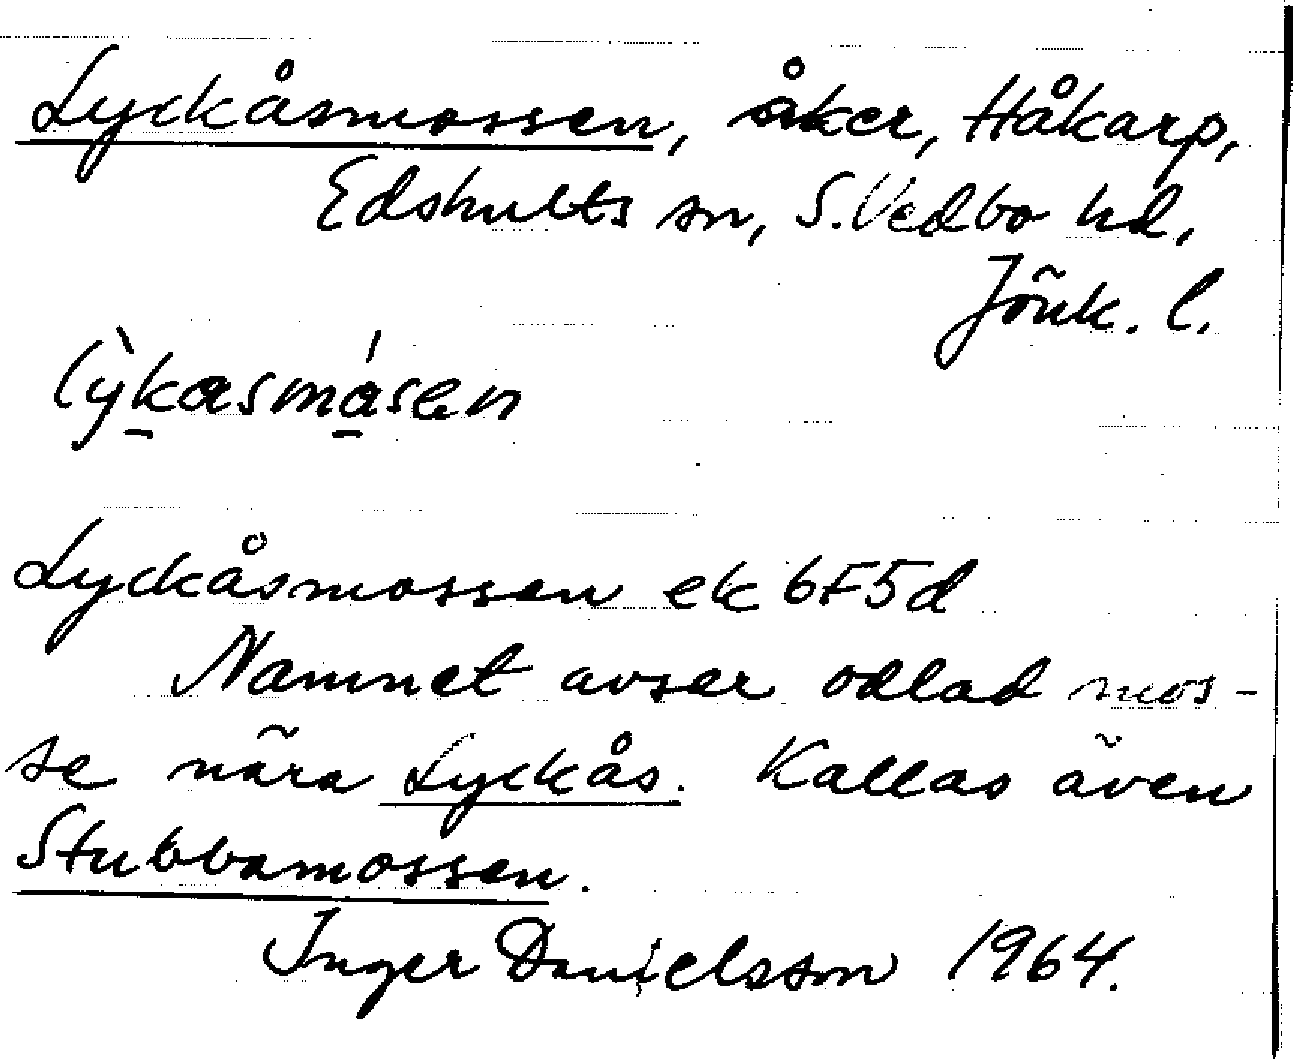 Lyckåsmossen, åker, Håkarp,
Edshults sn, S. Vedbo hd,
Jönk. l.
lỳkasmásen
Lyckåsmossen ek 6F5d
Namnet avser odlad mos-
se nära Lyckås. Kallas även
Stubbamossen.
Inger Danielsson 1964.